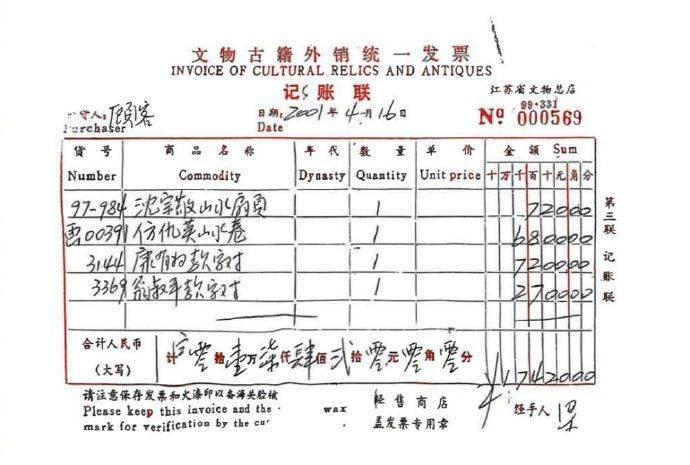 文物古籍外销统一发票
INVOICE OF CULTURAL RELICS AND ANTIQUES
记账联
江苏省文物总店
99·331
购货人: 顾客
Purchaser
日期: 2001年4月16日
Date
№ 000569
货号 商品名称 年代 数量 单价 金额 Sum
Number Commodity Dynasty Quantity Unit price 十万千百十元角分
97-984 沈宗敬山水扇頁 1 72000
雲00391 仿仇英山水卷 1 680000
3144 康有为款字对 1 720000
3369 翁叔平款字对 1 270000
合计人民币
(大写)
计 零拾壹万柒仟肆佰贰拾零元零角零分 ¥1742000
第三联 记账联
请注意保存发票和火漆印以备海关验核
Please keep this invoice and the wax
mark for verification by the cu
经售商店
盖发票专用章
经手人